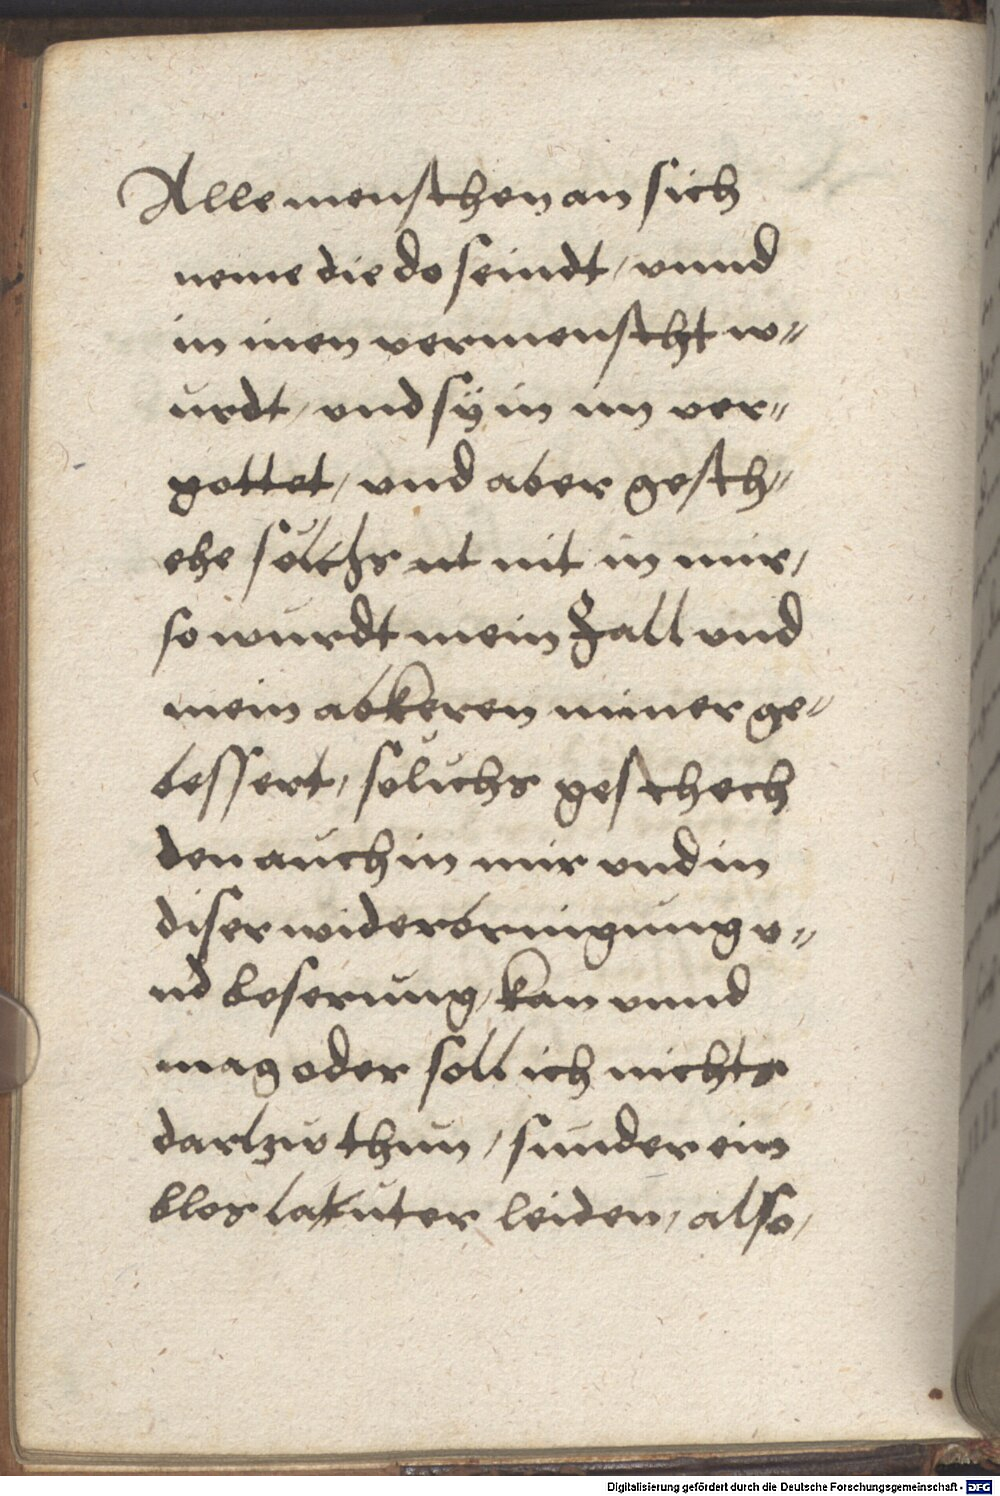 Alle menschen an sich
neme die do seindt, vnnd
in inen vermenscht w=
urdt, vnd sy in im ver=
gottet, vnd aber gesch=
ehe sölchs nit in mir,
so wurdt mein Fall vnd
mein abkeren nimer ge=
bessert, soluchs geschech
den auch in mir vnd in
diser widerbringung v=
nd beserung, kan vnnd
mag oder soll ich nichts
dartzw thun, sunder ein
blos lauter leiden, also,
Digitalisierung gefördert durch die Deutsche Forschungsgemeinschaft - DFG